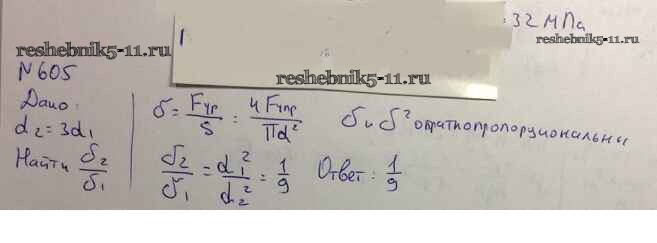 = 32 МПа
1
reshebnik5-11.ru
reshebnik5-11.ru
N 605
Дано:
d₂ = 3d₁
Найти σ₂/σ₁
σ = Fупр/S = 4Fупр/Πd² σ и δ² обратнопропорциональны
σ₂/σ₁ = d₁²/d₂² = 1/9 Ответ: 1/9